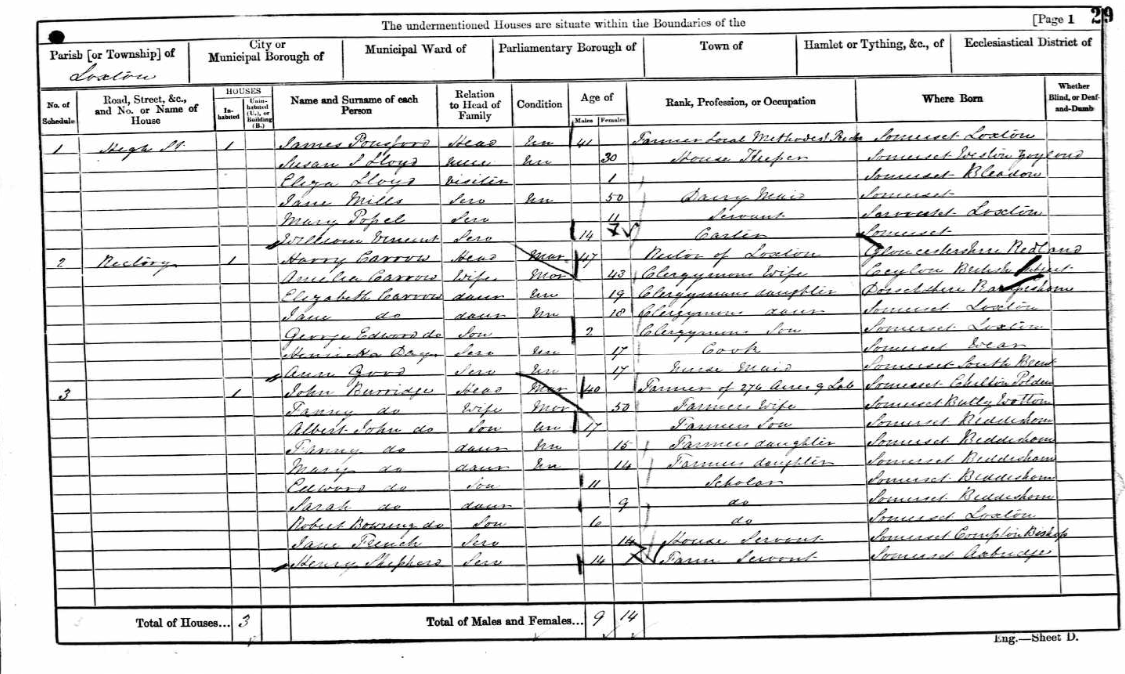 The undermentioned Houses are situate within the Boundaries of the [Page 1 29
Parish [or Township] of City or Municipal Borough of Municipal Ward of Parliamentary Borough of Town of Hamlet or Tything, &c., of Ecclesiastical District of
Loxton
No. of Schedule Road, Street, &c., and No. or Name of House HOUSES Inhabited Uninhabited (U.), or Building (B.) Name and Surname of each Person Relation to Head of Family Condition Age of Males Females Rank, Profession, or Occupation Where Born Whether Blind, or Deaf-and-Dumb
1 High St. 1 James Ponsford Head Un 41 Farmer Local Somerset Loxton
Susan S Lloyd Un 30 House Keeper Somerset Weston Zoyland
Eliza Lloyd Visitor 1 Somerset Bleadon
Jane Mills Serv Un 50 Dairy Maid Somerset
Mary Popel Serv 11 Servant Somerset Loxton
William Vincent Serv 14 Carter Somerset
2 Rectory 1 Harry Carrow Head Mar 47 Rector of Loxton Gloucestershire Redland
Amelia Carrow Wife Mar 43 Clergymans Wife Ceylon British
Elizabeth Carrow daur Un 19 Clergymans daughter Dorsetshire
Jane do daur Un 18 Clergymans daur Somerset Loxton
George Edward do Son 2 Clergymans Son Somerset Loxton
Serv Un 17 Cook Somerset Wear
Ann Good Serv Un 17 Nurse Maid Somerset South Brent
3 1 John Burridge Head Mar 40 Farmer of 274 Acres Somerset Chilton Polden
Fanny do Wife Mar 50 Farmers Wife Somerset Wotton
Albert John do Son Un 17 Farmers Son Somerset Biddesham
Fanny do daur Un 15 Farmers daughter Somerset Biddesham
Mary do daur Un 14 Farmers daughter Somerset Biddesham
Edward do Son 11 Scholar Somerset Biddesham
Sarah do daur 9 do Somerset Biddesham
Robert do Son 6 do Somerset Loxton
Jane French Serv 14 House Servant Somerset Compton Bishop
Henry Shepherd Serv 14 Farm Servant Somerset Axbridge
Total of Houses... 3 Total of Males and Females... 9 14
Eng.—Sheet D.